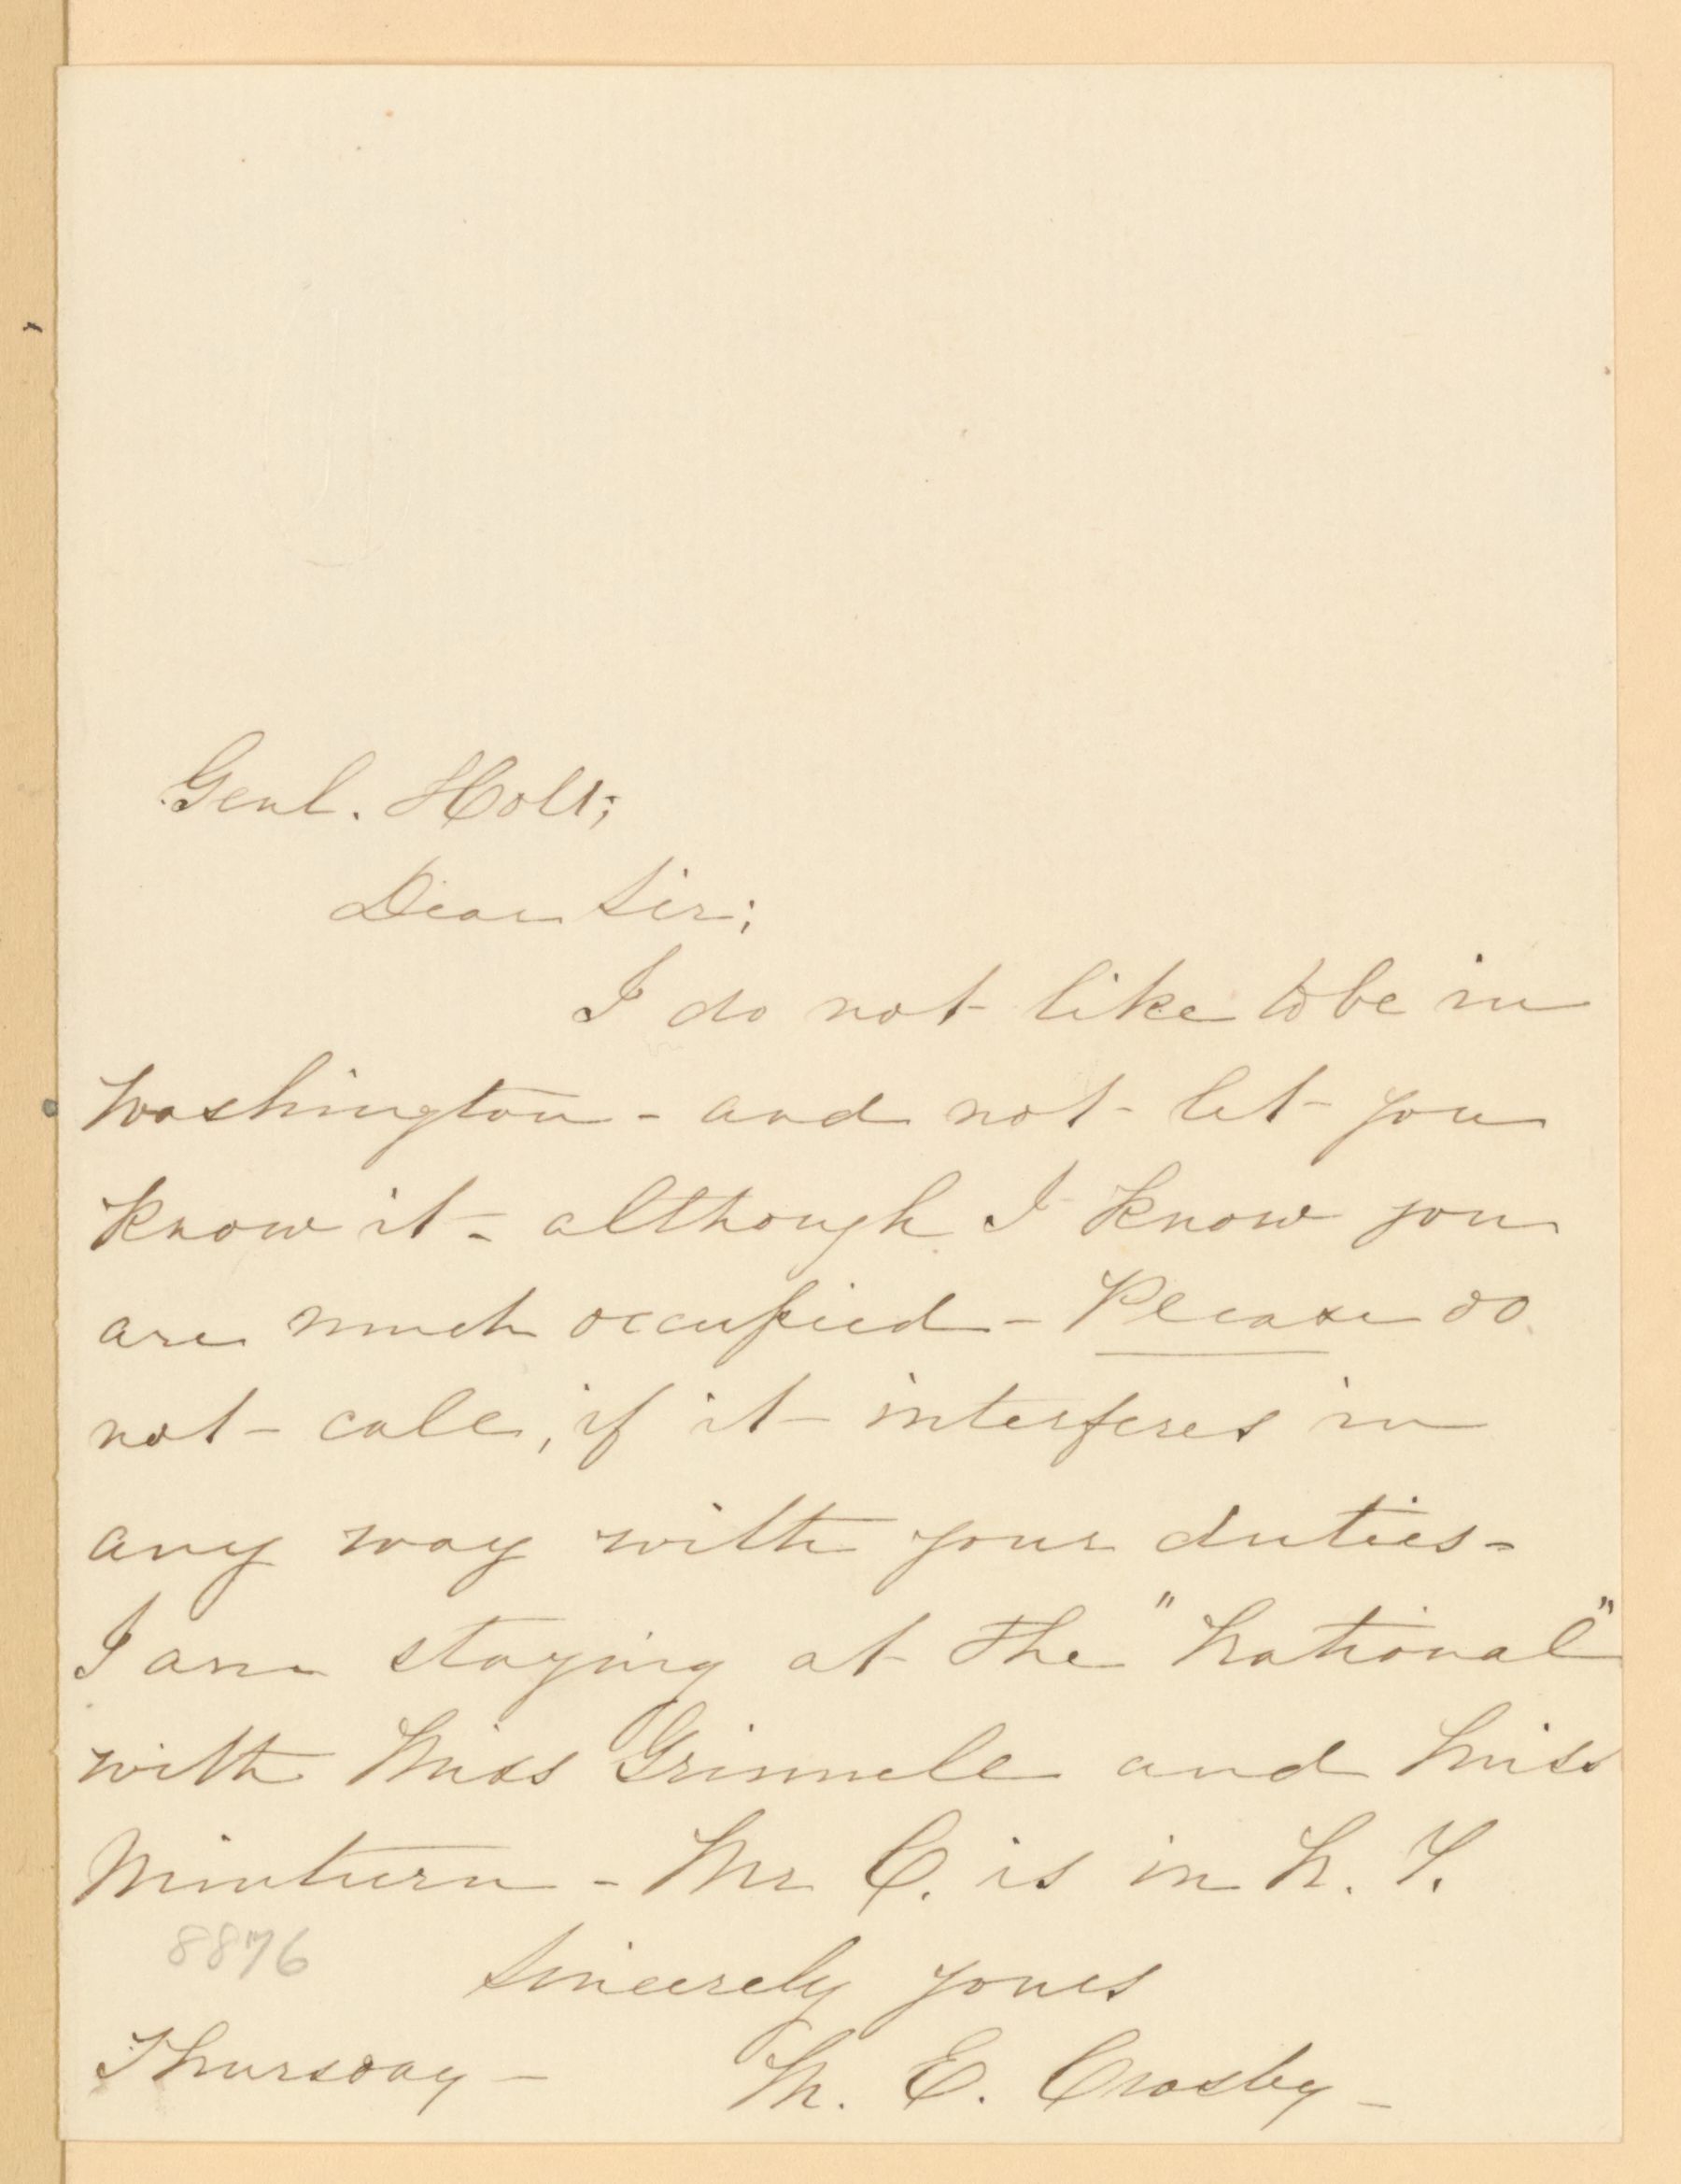 Genl. Holt;
Dear Sir;
I do not like to be in
Washington - and not let you
know it - although I know you
are much occupied - Please do
not call, if it interferes in
any way with your duties -
I am staying at the "National"
with Miss Grinnell and Miss
Minturn - Mr C. is in N. Y.
8876
Sincerely yours
Thursday - M. E. Crosby -